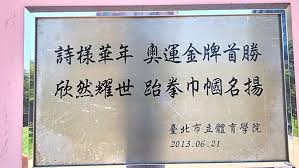 詩樣華年 奧運金牌首勝
欣然耀世 跆拳巾幗名揚
臺北市立體育學院
2013.06.21